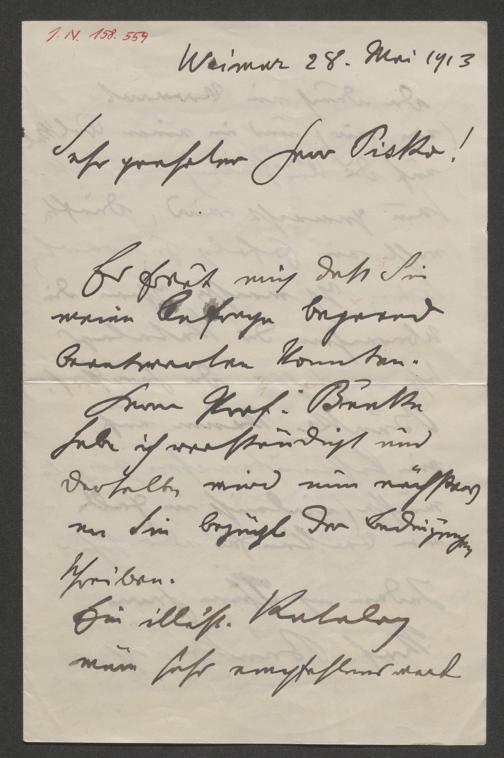 J. N. 158.559
Weimar 28. Mai 1913
Sehr geehrter Herr Pisko!
Es freut mich daß Sie
meine Anfrage bejaend
beantworten konnten.
Herrn Prof.
habe ich verständigt und
derselbe wird nun nächstens
an Sie bezügl. der Bedingungen
schreiben.
Ein illustr. Katalog
wäre sehr empfehlenswert